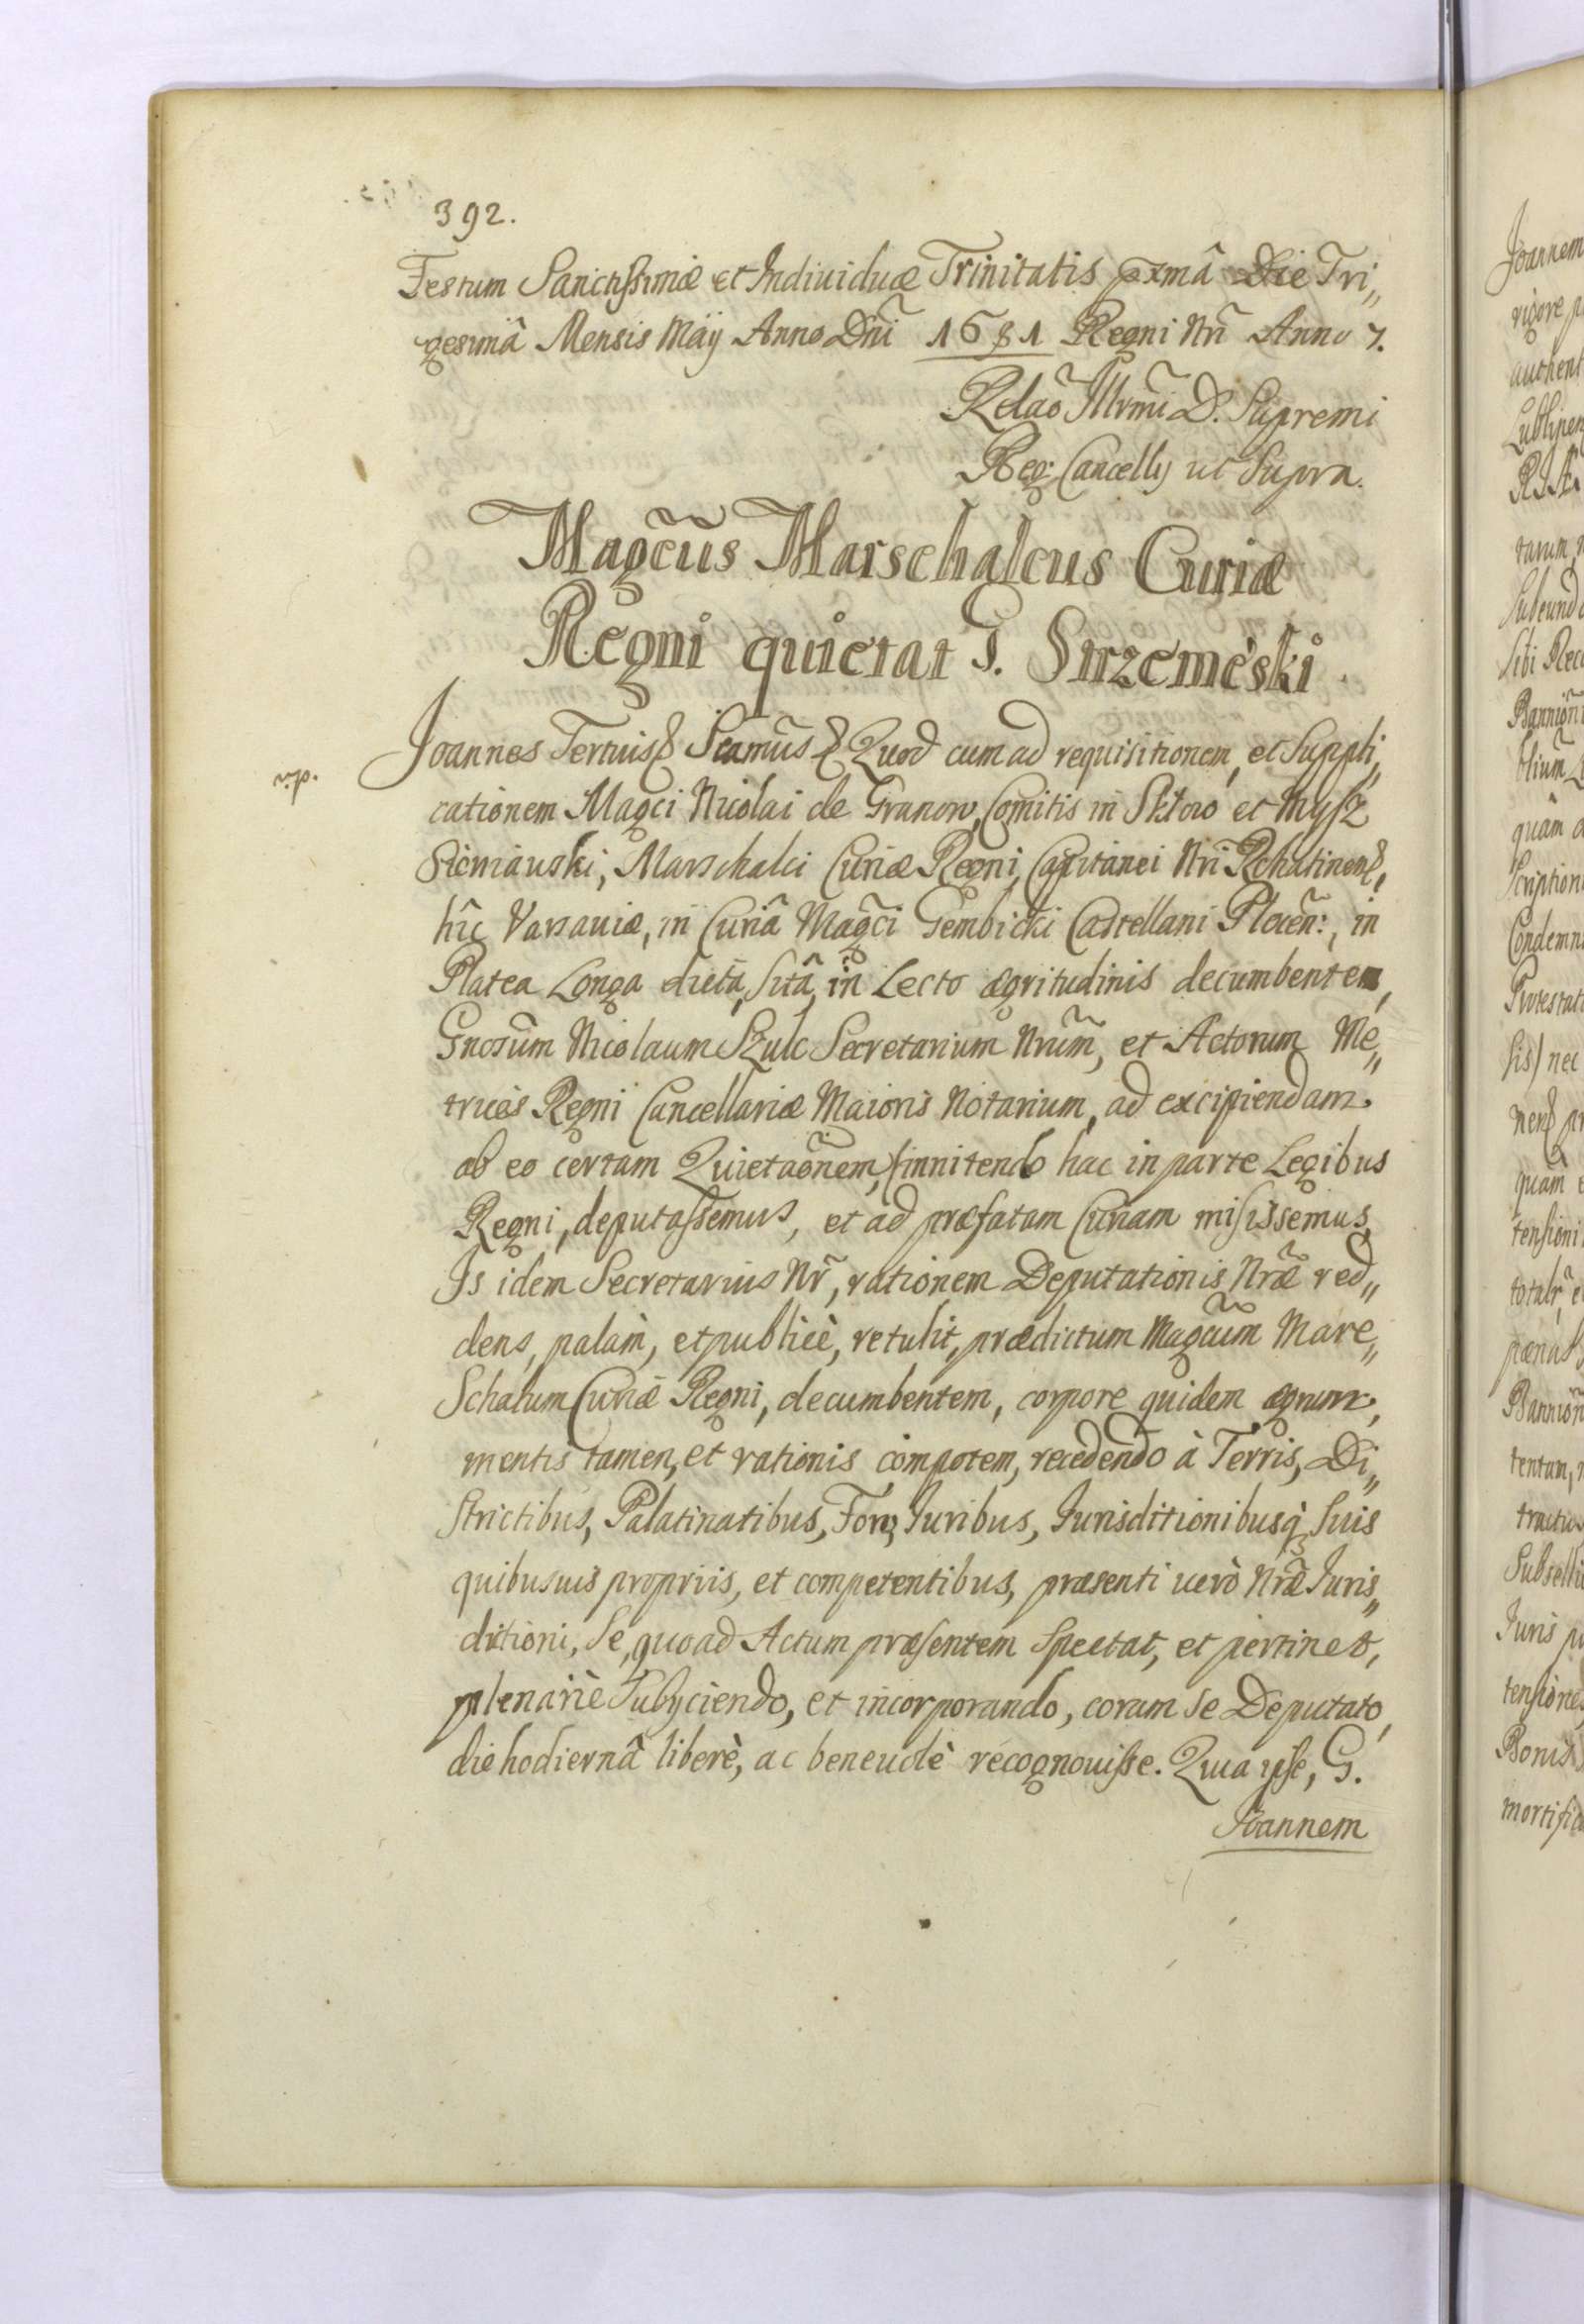 392.
Festum Sanctissimæ et Indiuiduæ Trinitatis pxmâ Die Tri„
gesimâ Mensis Maÿ Anno Dñi 1681 Regni Nri Anno 7.
Relaõ Illrmi D. Supremi
Reg: Cancellÿ ut Supra.
Magcũs Marschalcus Curiæ
Regni quietat G. Strzemeski
Joannes Tertius Scamũs Quod cum ad requisitionem, et Suppli„
cationem Magci Nicolai de Granow, Comitis in Skłow et Mysz
Sieniauski, Marschalci Curiæ Regni, Capitanei Nri Rohatinen,
hîc Varsauiæ, in Curiâ Magci Gembicki Castellani Plocen̄:, in
Platea Longa dictâ, Sitâ, in Lecto ægritudinis decumbentem,
Gnosũm Nicolaum Szulc Secretarium Nrũm, et Actorum Me„
trices Regni Cancellariæ Maioris Notarium, ad excipiendam
ab eo certam Quietaõnem, (innitendo hac in parte Legibus
Regni, deputassemus, et ad præfatam Curiam misissemus,
Is idem Secretarius Nr̃, rationem Deputationis Nræ̃ red„
dens, palàm, et publicè, retulit, prædictum Magcũm Mare„
Schalum Curiæ Regni, decumbentem, corpore quidem ægrum,
mentis tamen, et rationis compotem, recedendo à Terris, Di„
Strictibus, Palatinatibus, Foro, Iuribus, Iurisditionibusq; Suis
quibusuis propriis, et competentibus, præsenti uerò Nræ̃ Juris„
dictioni, Se, quoad Actum præsentem Spectat, et pertinet,
plenariè Subÿciendo, et incorporando, coram se Deputato,
die hodiernâ liberè, ac beneuolè recognouisse. Quia ipse, G.
Joannem